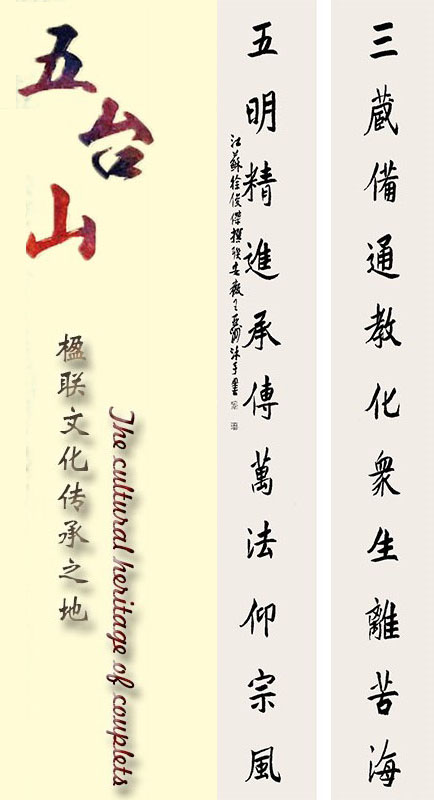 五台山
楹联文化传承之地
The cultural heritage of couplets
三藏備通教化衆生離苦海
五明精進承傳萬法仰宗風